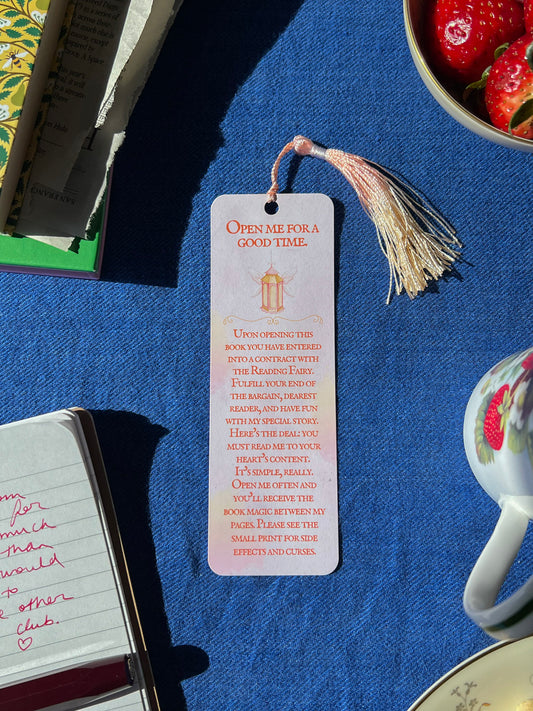 is a series of
SAN FRANC
OPEN ME FOR A
GOOD TIME.
UPON OPENING THIS
BOOK YOU HAVE ENTERED
INTO A CONTRACT WITH
THE READING FAIRY.
FULFILL YOUR END OF
THE BARGAIN, DEAREST
READER, AND HAVE FUN
WITH MY SPECIAL STORY.
HERE'S THE DEAL: YOU
MUST READ ME TO YOUR
HEART'S CONTENT.
IT'S SIMPLE, REALLY.
OPEN ME OFTEN AND
YOU'LL RECEIVE THE
BOOK MAGIC BETWEEN MY
PAGES. PLEASE SEE THE
SMALL PRINT FOR SIDE
EFFECTS AND CURSES.
for
much
than
would
to
other
club.
♡